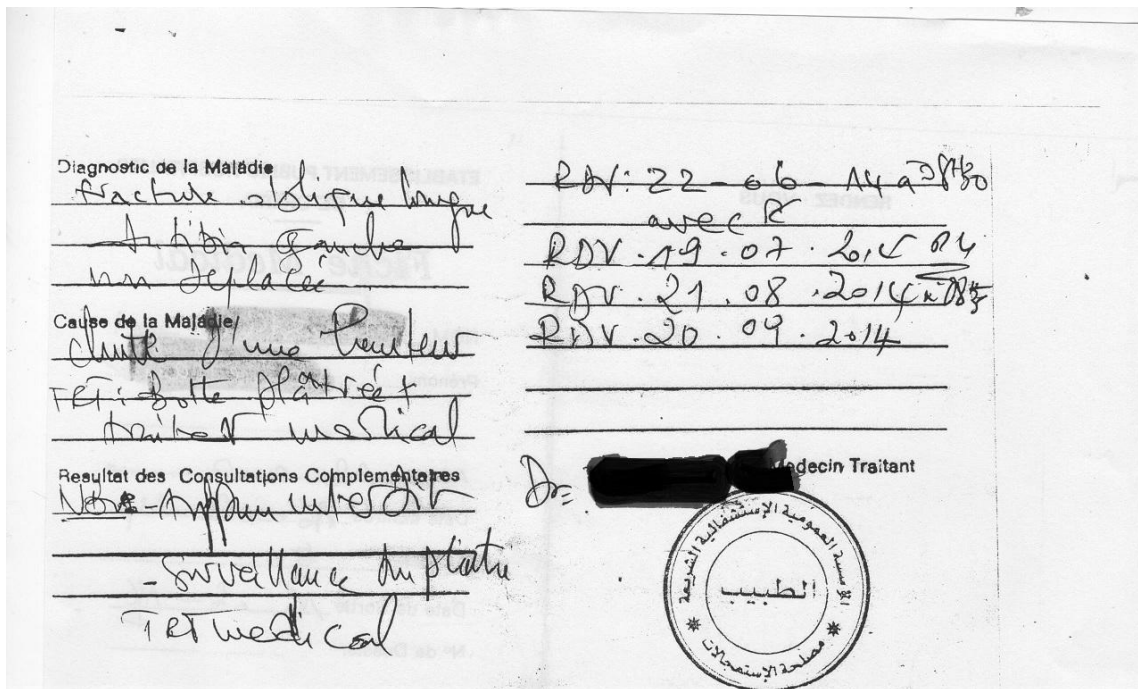 Diagnostic de la Maladie
fracture oblique longue
du tibia Gauche
non déplacée
Cause de la Maladie
chute d'une hauteur
TRT: botte plâtrée +
traitement medical
Resultat des Consultations Complementaires
NB: - Appui interdit
- Surveillance du platre
TRT medical
RDV: 22-06-14 a 08H30
avec R
RDV. 19.07.2014
RDV. 21.08.2014 a 08H
RDV. 20.09.2014
Medecin Traitant
Dr:
المؤسسة العمومية الإستشفائية الشريعة
الطبيب
* مصلحة الإستعجالات *